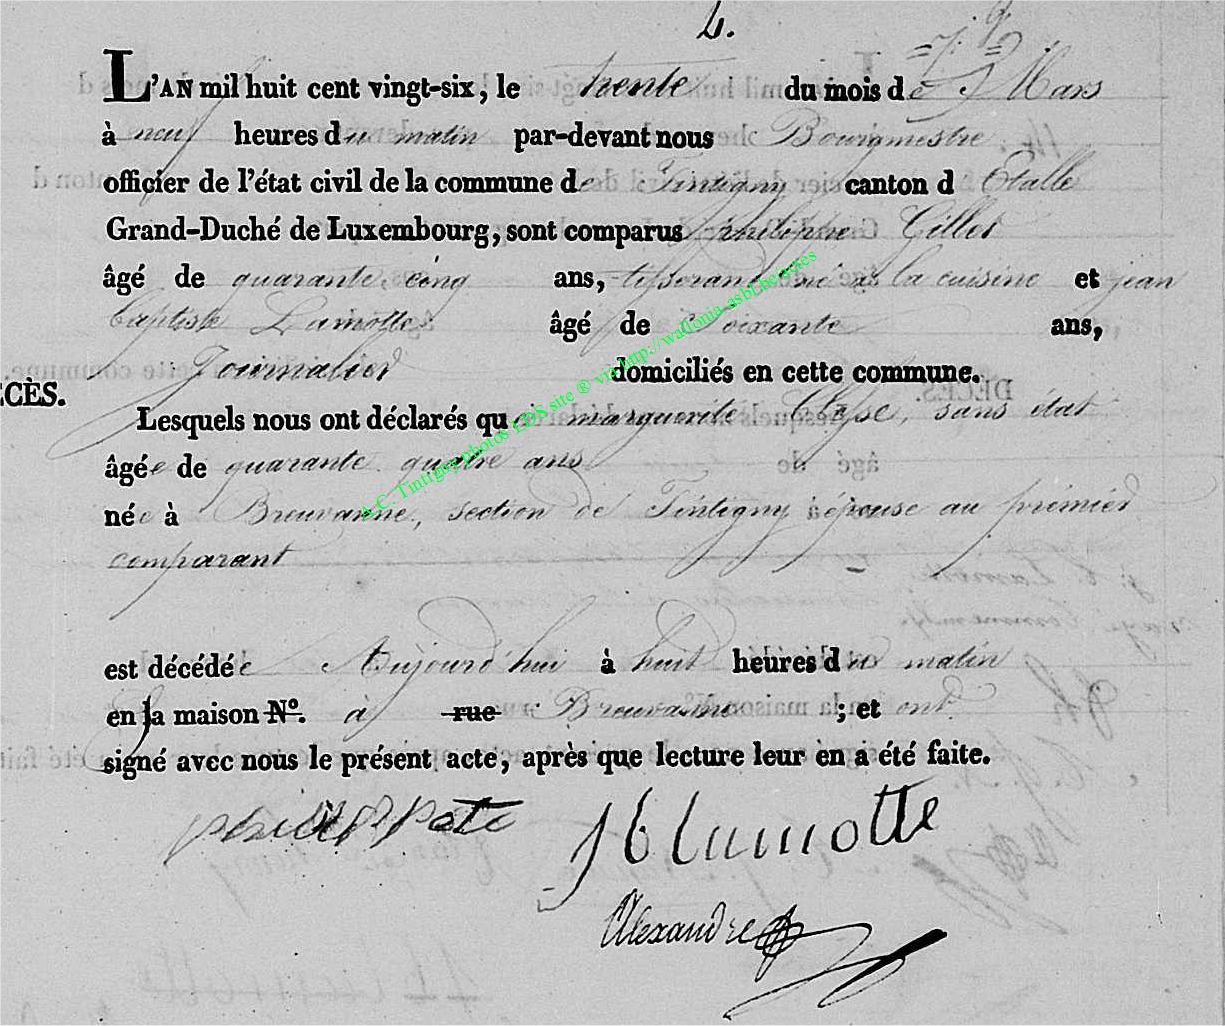 4.
L'AN mil huit cent vingt-six, le trente du mois de Mars
à neuf heures du matin par-devant nous Bourgmestre
officier de l'état civil de la commune de Tintigny canton d Etalle
Grand-Duché de Luxembourg, sont comparus philippe Gillet
âgé de quarante, cinq ans, tisserand à la cuisine et jean
baptiste Lamotte âgé de Soixante ans,
Journalier domiciliés en cette commune.
CÈS.
Lesquels nous ont déclarés que marguerite sans état
âgée de quarante quatre ans
née à Breuvanne, section de Tintigny épouse au premier
comparant
est décédée Aujourd'hui à huit heures du matin
en la maison N°. à rue Breuvanne ; et ont
signé avec nous le présent acte, après que lecture leur en a été faite.
JB lamotte
Alexandre
A.C. Tintigny photos LDS site ® via http://wallonia-asbl.be/actes